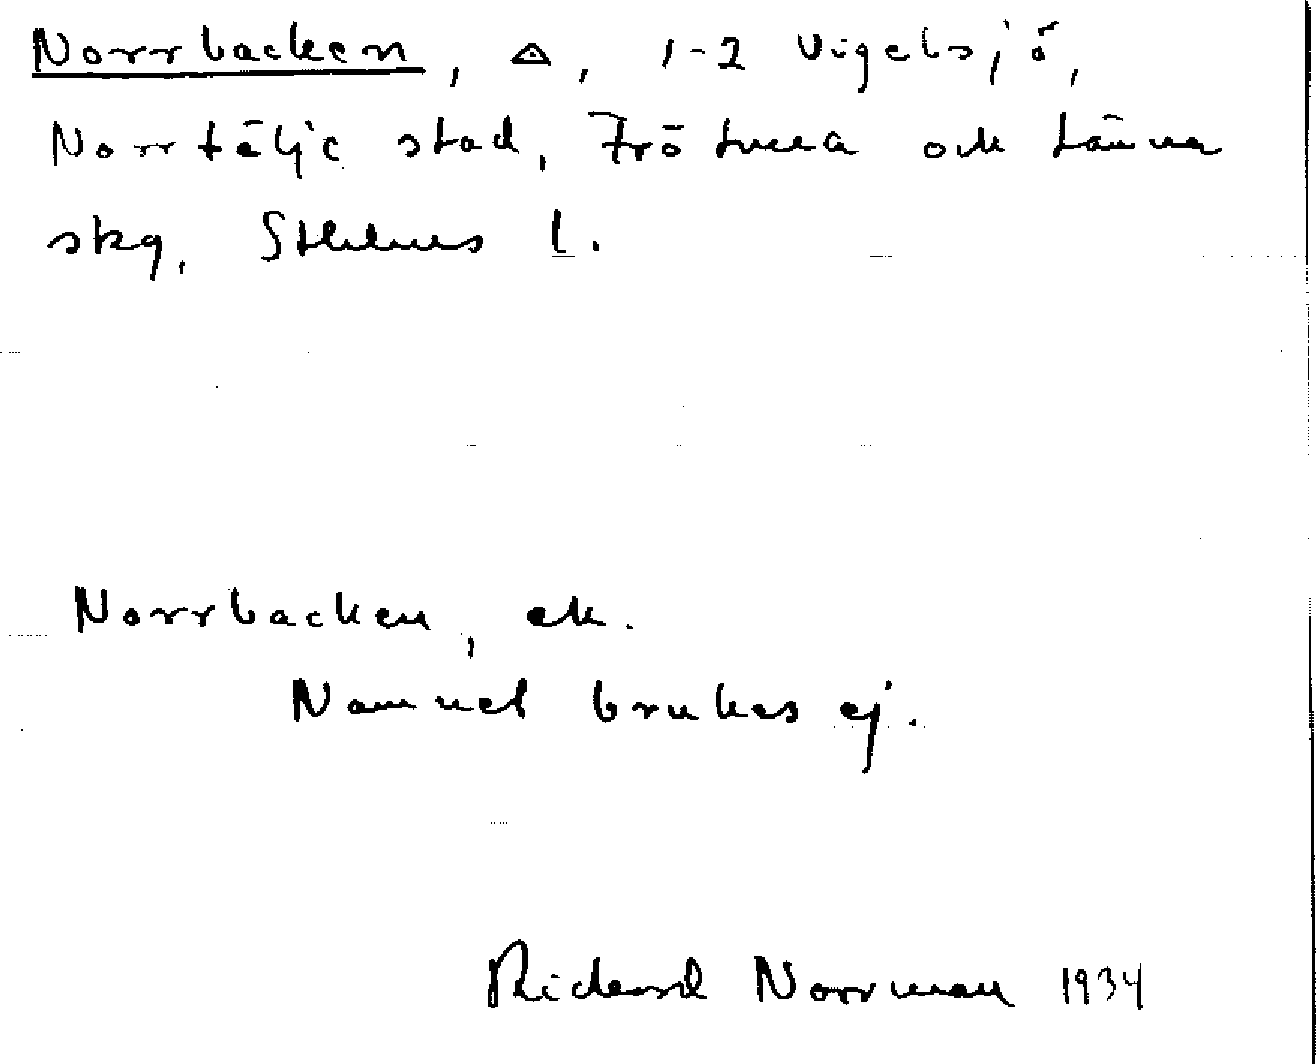 Norrbacken, △, 1-2 Vigelsjö,
Norrtälje stad, Frötuna och Länna
skg, Sthlms l.
Norrbacken, ek.
Namnet brukas ej.
Rickard Norrman 1934